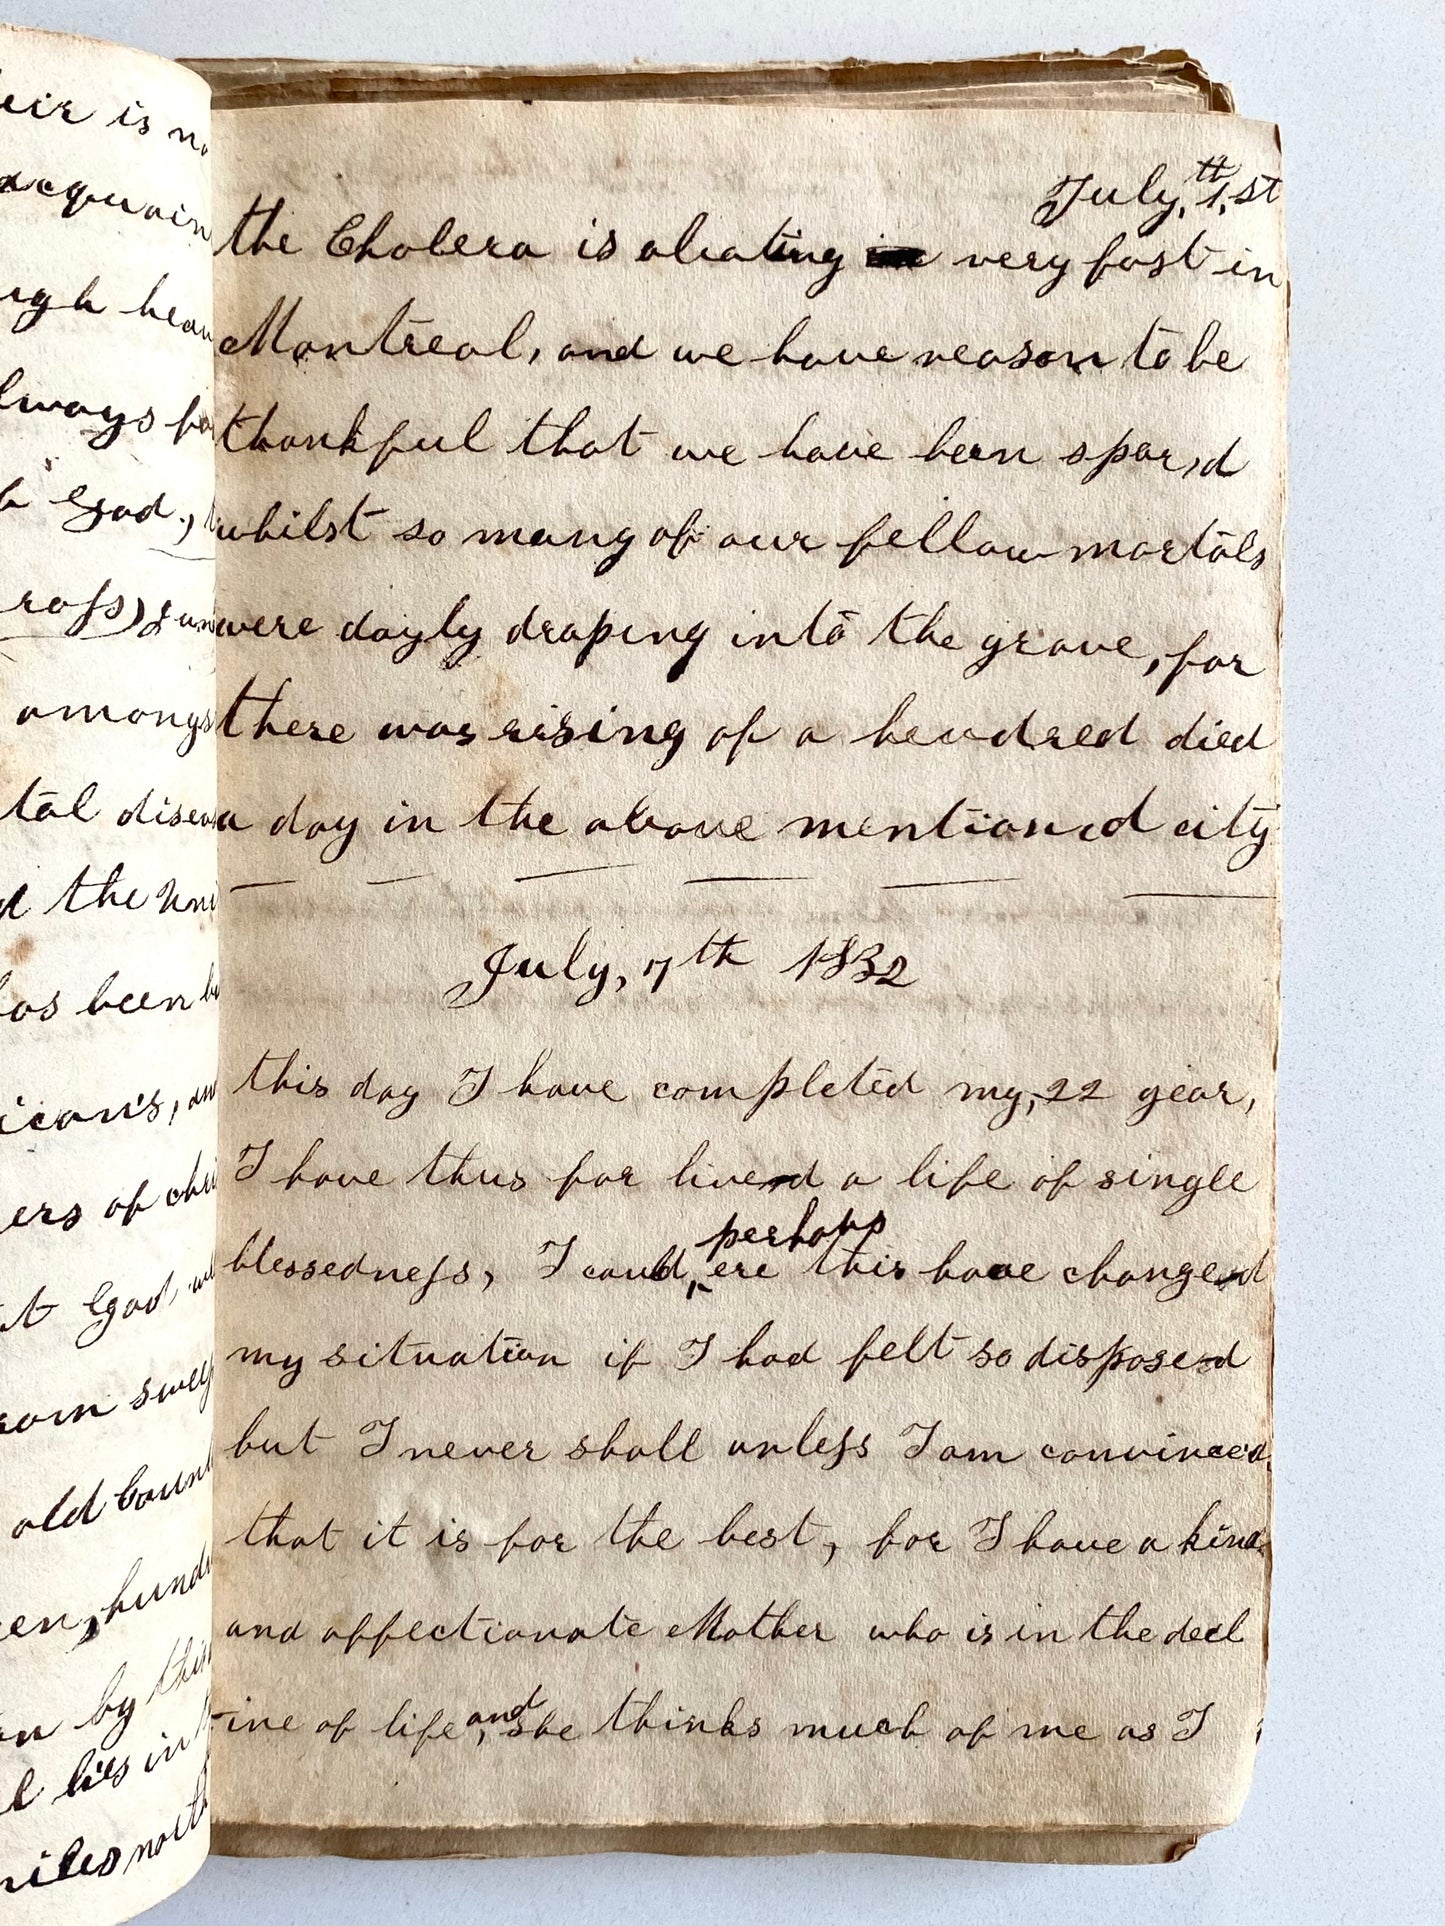 eir is no
acquain
ugh heav
lways fo
h God.,
ross) &
amongs
tal diseas
d the Uni
has been b
icans, an
ers of chri
t God
rom swep
old Coun
en, hund
n by this
l lies in
miles north
July, th 1, st
the Cholera is abating very fast in
Montreal, and we have reason to be
thankful that we have been spar,d
whilst so many of our fellow mortals
were dayly draping into the grave, for
there was rising of a hendred died
a day in the above mentioned city
July, 7th 1832
this day I have completed my, 22 year,
I have thus far lived a life of single
blessedness, I could, perhaps ere this have changed
my situation if I had felt so disposed
but I never shall unless I am convince'd
that it is for the best, for I have a kind
and affectionate Mother who is in the decl
-ine of life, and she thinks much of me as I